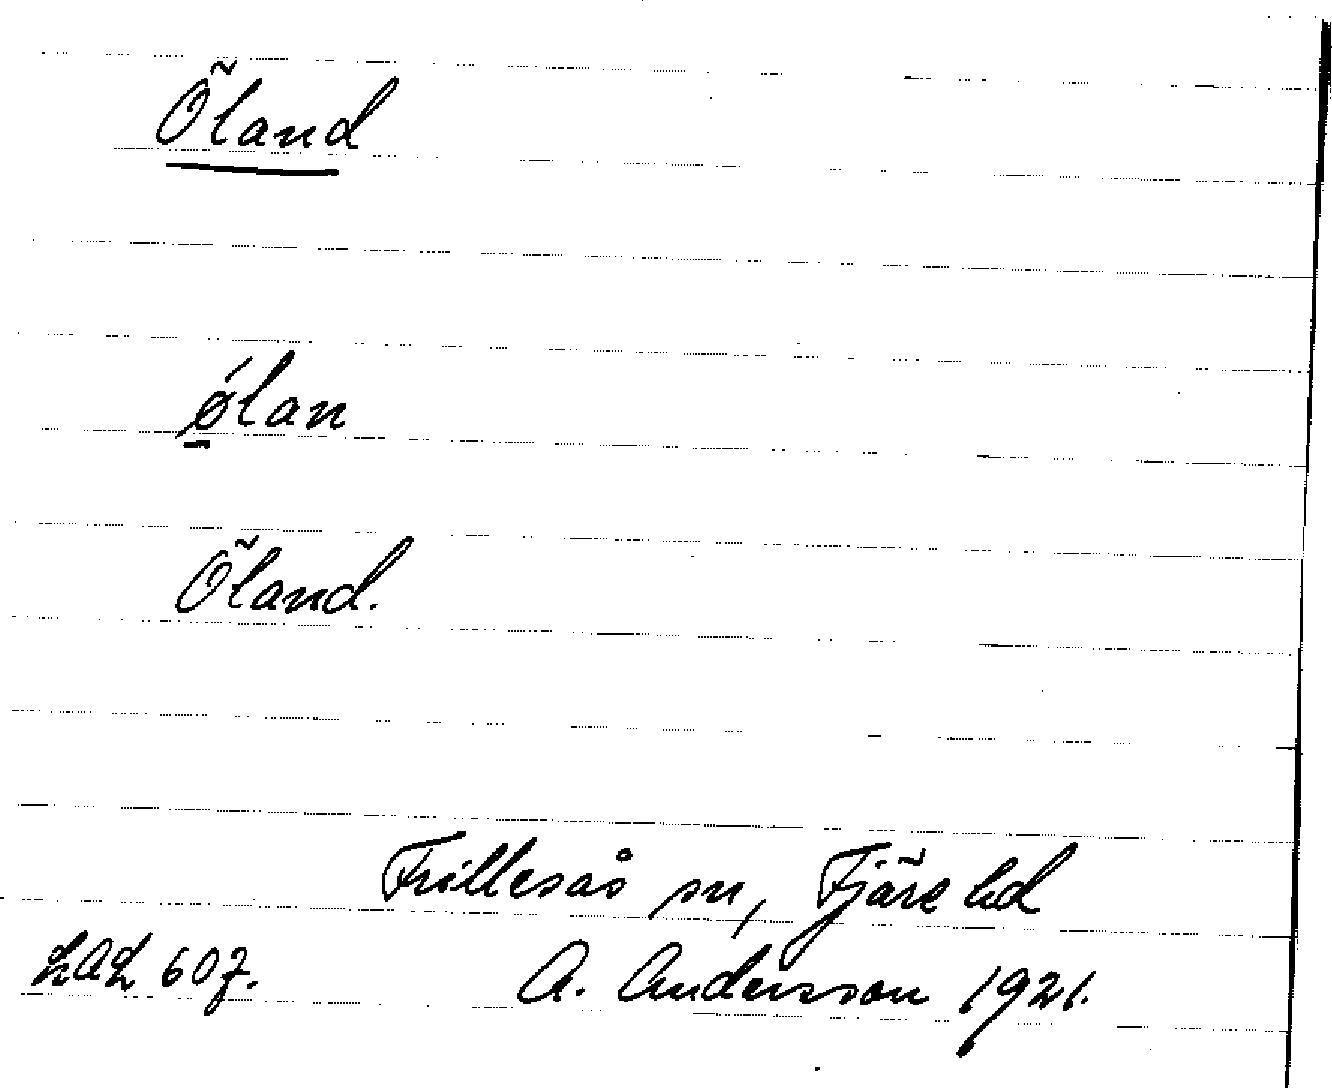 Öland
ǿlan
Öland.
Frillesås sn, Fjäre hd
LAL 607. A. Andersson 1921.